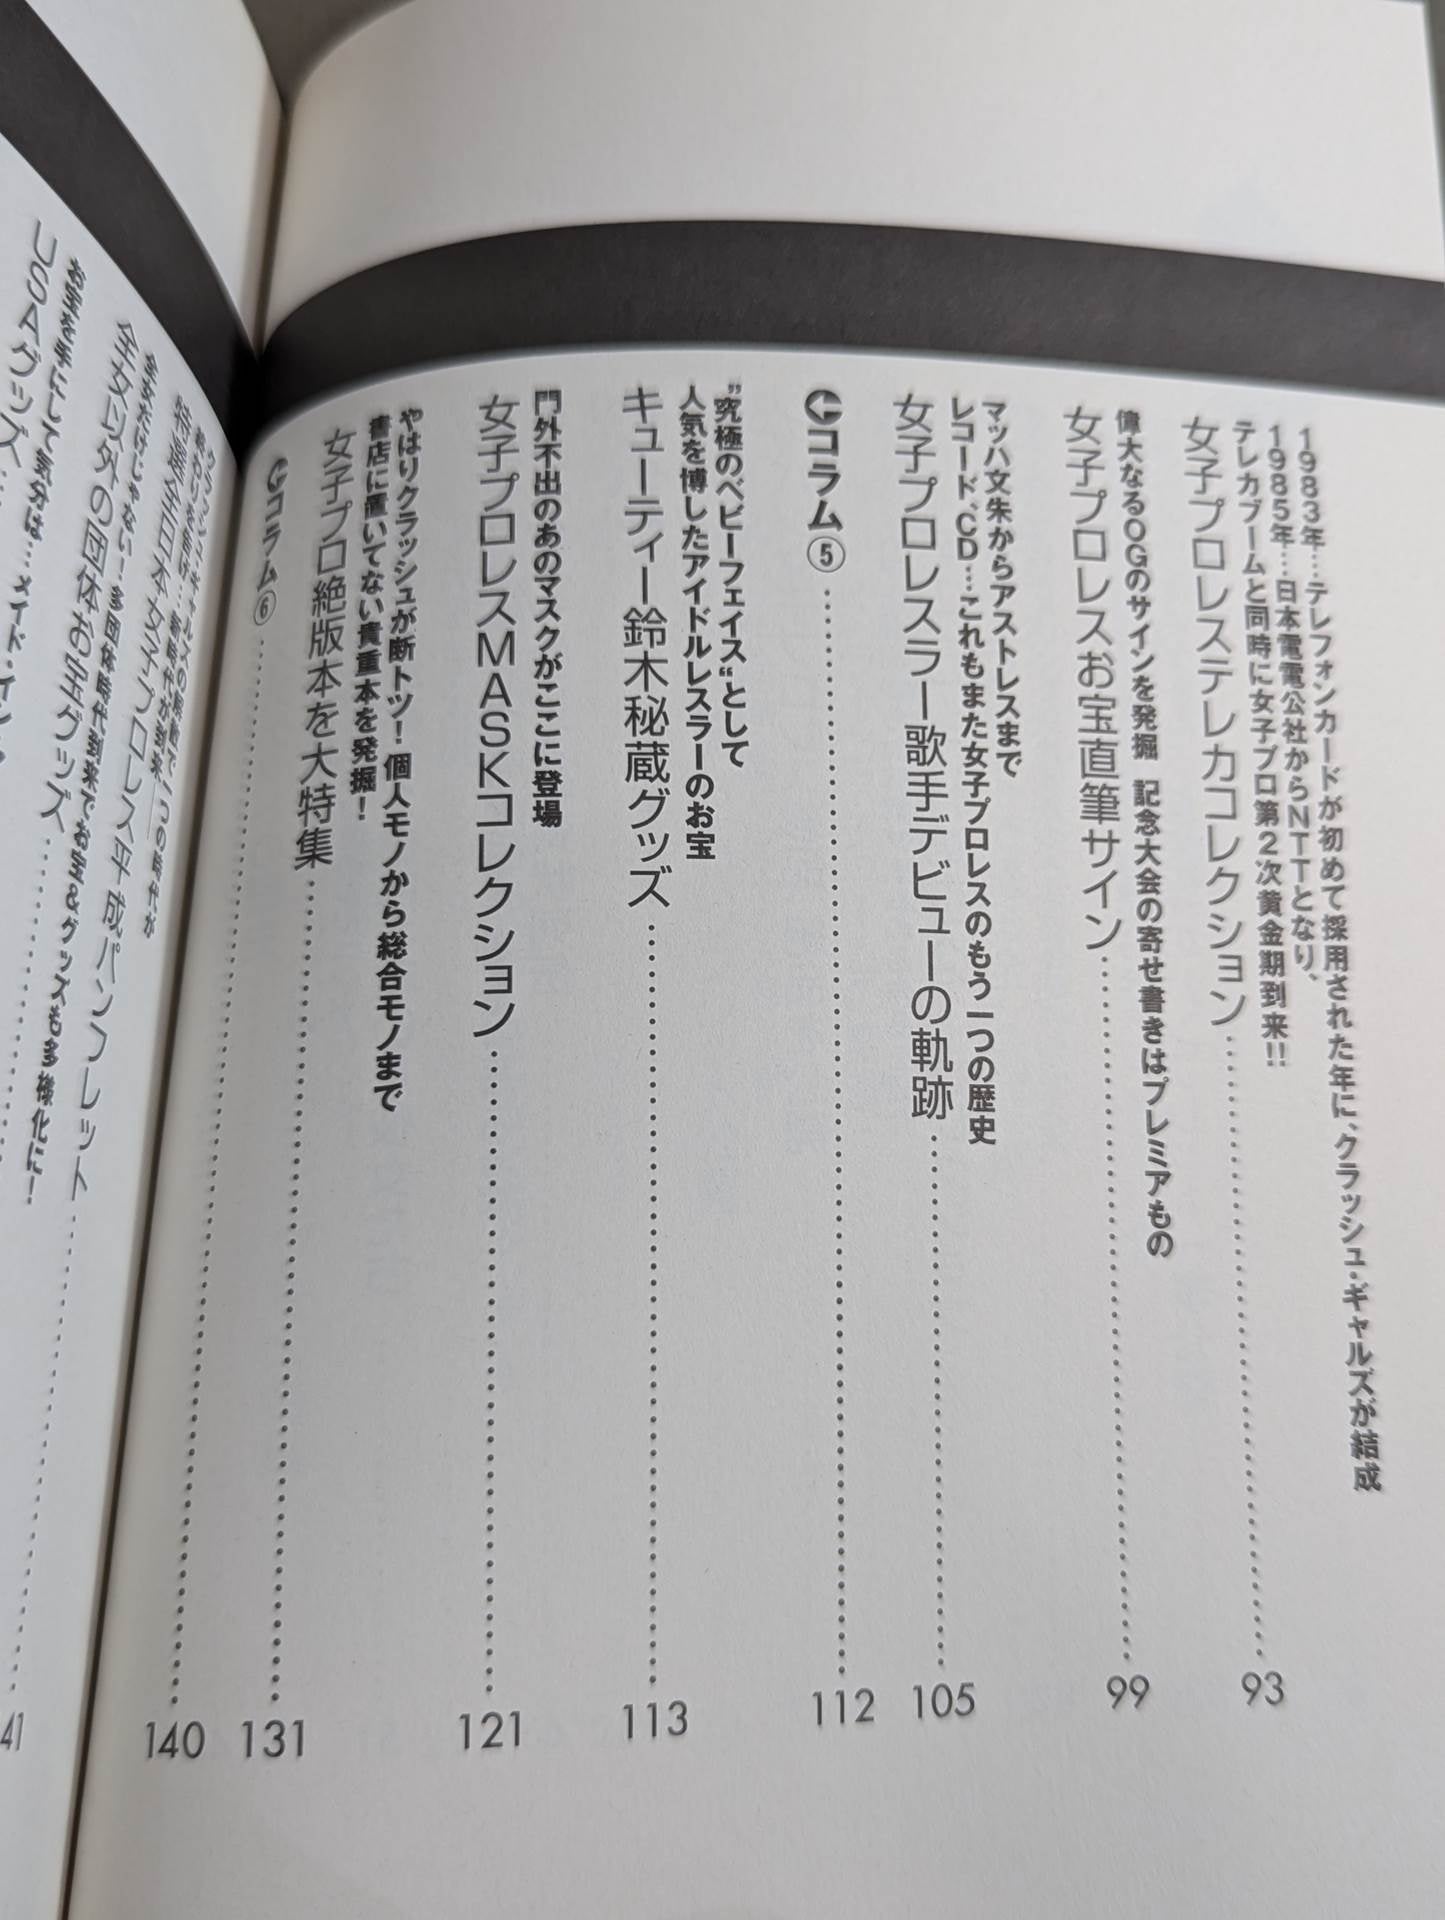 1983年…テレフォンカードが初めて採用された年に、クラッシュ・ギャルズが結成
1985年…日本電電公社からNTTとなり、
テレカブームと同時に女子プロ第2次黄金期到来!!
女子プロレステレカコレクション 93
偉大なるOGのサインを発掘 記念大会の寄せ書きはプレミアもの
女子プロレスお宝直筆サイン 99
マッハ文朱からアストレスまで
レコード、CD…これもまた女子プロレスのもう一つの歴史
女子プロレスラー歌手デビューの軌跡 105
コラム⑤ 112
"究極のベビーフェイス"として
人気を博したアイドルレスラーのお宝
キューティー鈴木秘蔵グッズ 113
門外不出のあのマスクがここに登場
女子プロレスMASKコレクション 121
やはりクラッシュが断トツ! 個人モノから総合モノまで
書店に置いてない貴重本を発掘!
女子プロ絶版本を大特集 131
コラム⑥ 140
全女だけじゃない!多団体時代到来でお宝&グッズも多様化に!
全女以外の団体お宝グッズ
お宝を手にして気分は…メイド・イン
USAグッズ
41